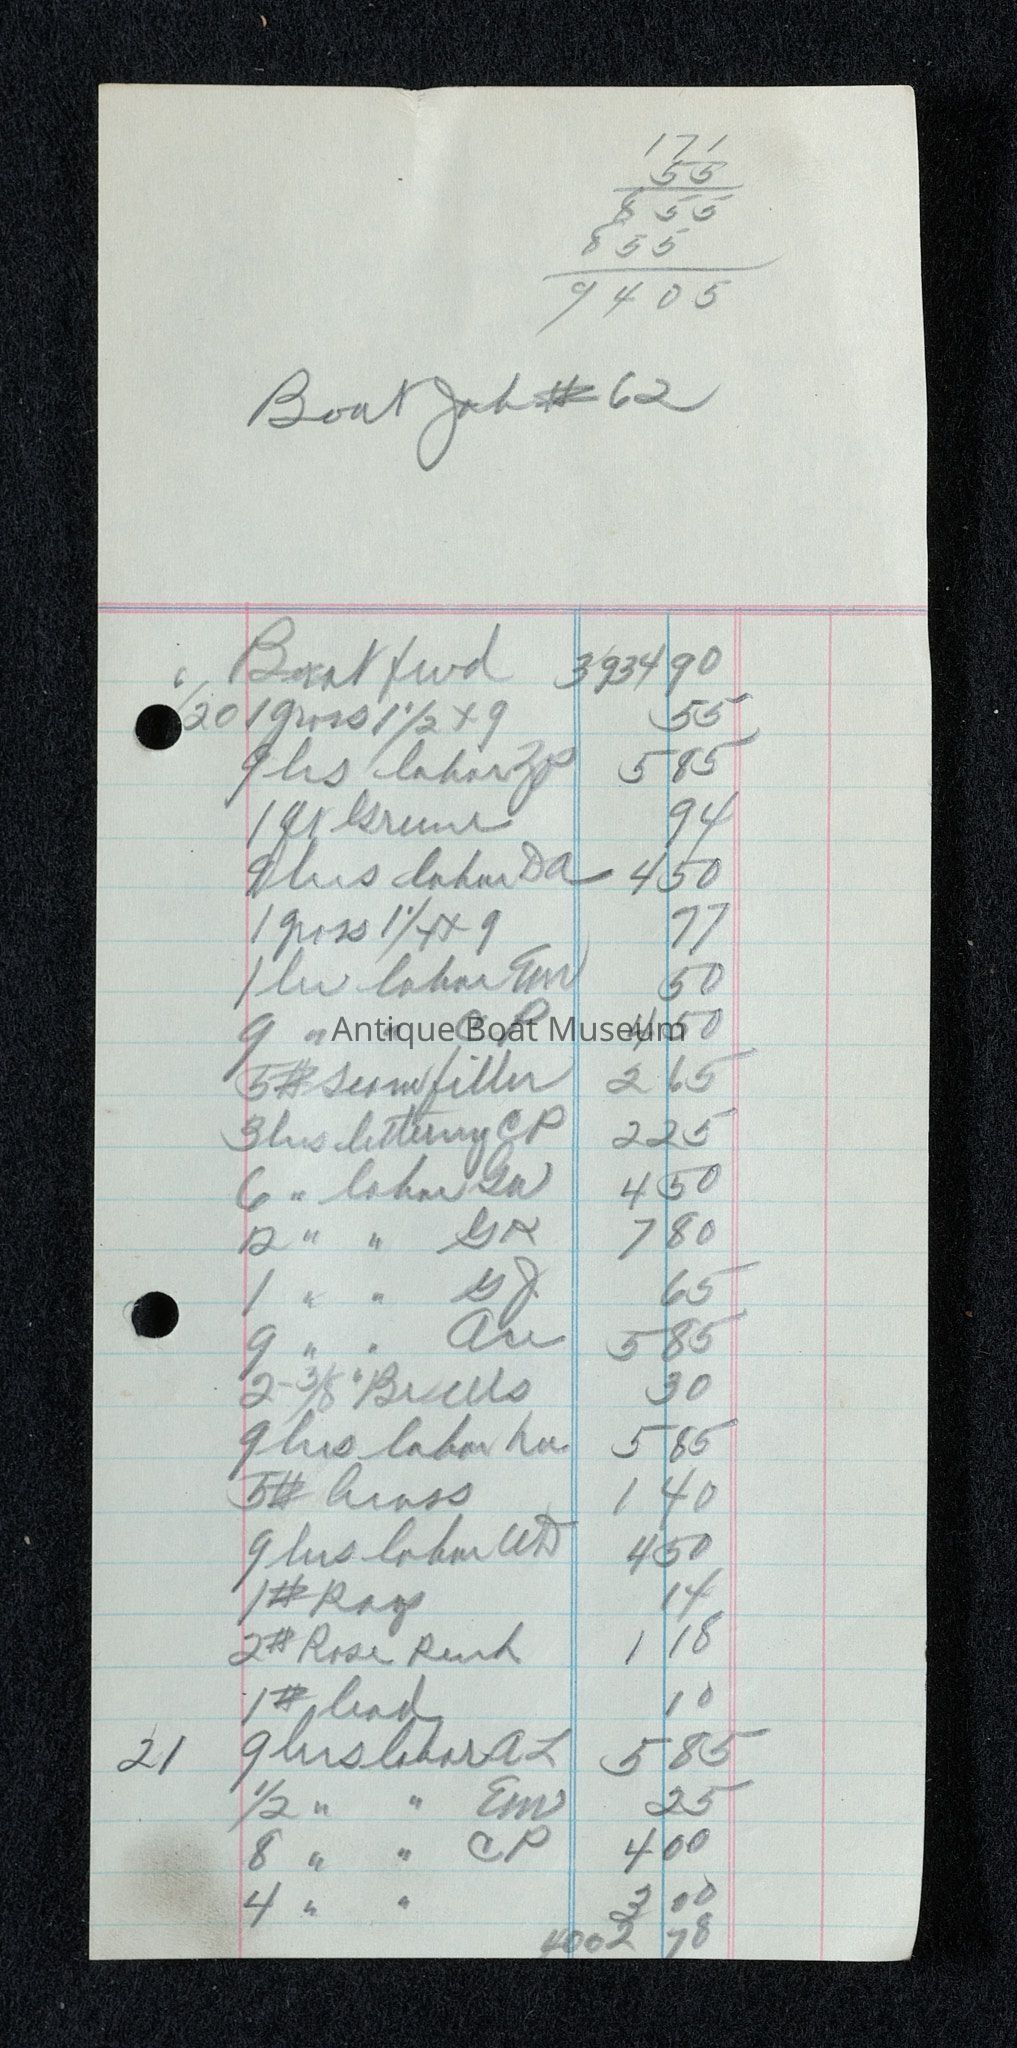 171
55
855
855
9405
Boat Job # 62
Boat fwd 3934 90
/20 1 gross 1 1/2 x 9 55
9 hrs labor 5 85
1 qt 94
9 hrs labor DA 4 50
1 gross 1 1/4 x 9 77
1 hr labor EW 50
9 " " CP 4 50
Antique Boat Museum
5# seam filler 2 65
3 hrs lettering CP 2 25
6 " labor GW 4 50
12 " " GK 7 80
1 " " GJ 65
9 " " 5 85
2 - 3/8" 30
9 hrs labor 5 85
5# brass 1 40
9 hrs labor WD 4 50
1# Rags 14
2# Rose 1 18
1# lead 10
21 9 hrs labor AL 5 85
1/2 " " EW 25
8 " " CP 4 00
4 " " 3 00
4002 78